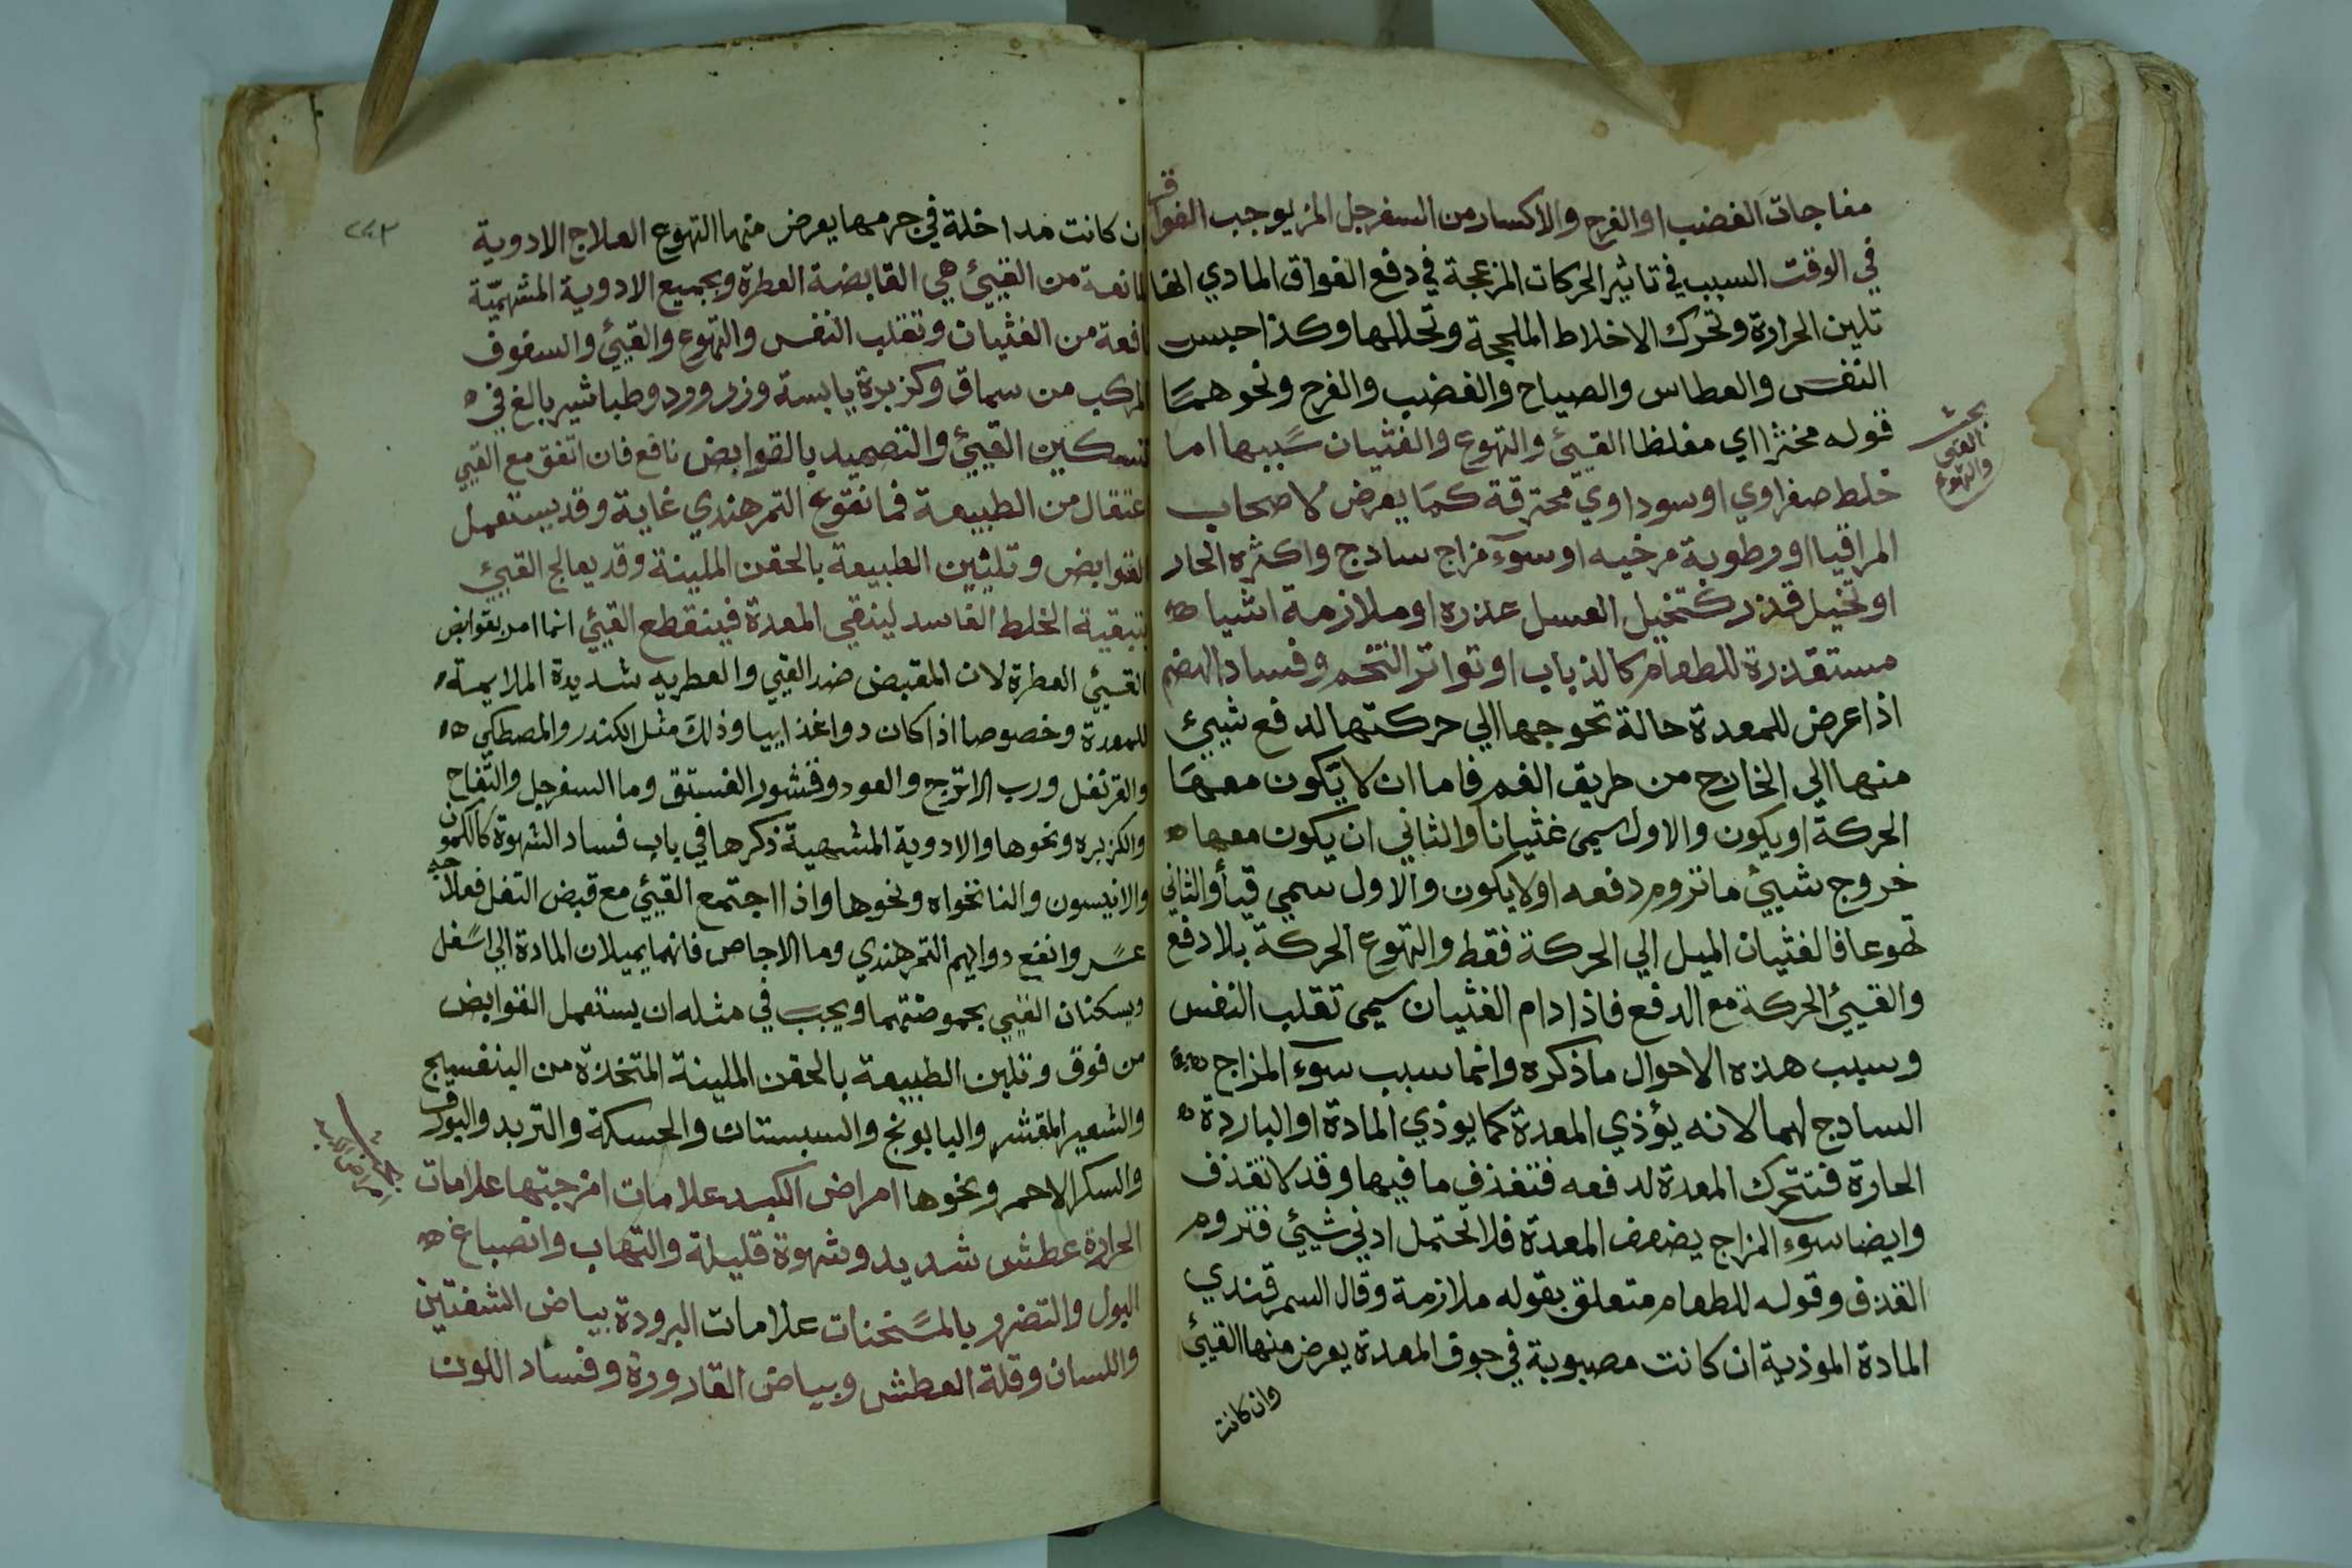 مفاجات الغضب او الفرح والاكسار من السفرجل المز يوجب الفواق
في الوقت السبب في تاثير الحركات المزعجة في دفع الفواق المادي انها
تلين الحرارة وتحرك الاخلاط الملججة وتحللها وكذا حبس
النفس والعطاس والصياح والغضب والفرح ونحوهما
قوله مخثرا اي مغلظا القيئ والتهوع والغثيان سببها اما
خلط صفراوي او سوداوي محترقة كما يعرض لاصحاب
المراقيا او رطوبة مرخيه او سوء مزاج سادج واكثره الحار
او تخيل قذر كتخيل العسل عذره او ملازمة اشيا
مستقذرة للطعام كالذباب او تواتر التخم وفساد الهضم
اذا عرض للمعدة حالة تحوجها الي حركتها لدفع شيئ
منها الي الخارج من طريق الفم فاما ان لا يكون معها
الحركة او يكون والاول سمي غثيانا والثاني ان يكون معها
خروج شيئ ما تروم دفعه او لا يكون والاول سمي قيأ والثاني
تهوعا فالغثيان الميل الي الحركة فقط والتهوع الحركة بلا دفع
والقيئ الحركة مع الدفع فاذا دام الغثيان سمي تقلب النفس
وسبب هذه الاحوال ما ذكره وانما سبب سوء المزاج
السادج لهما لانه يؤذي المعدة كما يوذي المادة او الباردة
الحارة فتتحرك المعدة لدفعه فتقذف ما فيها وقد لا تقذف
وايضا سوء المزاج يضعف المعدة فلا تحتمل ادني شيئ فتروم
القذف وقوله للطعام متعلق بقوله ملازمة وقال السمرقندي
المادة الموذية ان كانت مصبوبة في جوف المعدة يعرض منها القيئ
وان كانت
بحث
القئ
والتهوع
ن كانت مداخلة في جرمها يعرض منها التهوع العلاج الادوية
المانعة من القيئ هي القابضة العطرة وبجميع الادوية المشهيّة
نافعة من الغثيان وتقلب النفس والتهوع والقيئ والسفوف
المركب من سماق وكزبرة يابسة وزر وورد وطباشير بالغ في
تسكين القيئ والتضميد بالقوابض نافع فان اتفق مع القيي
اعتقال من الطبيعة فما نقوع التمر هندي غاية وقد يستعمل
القوابض وتليين الطبيعة بالحقن الملينة وقد يعالج القيئ
بتبقية الخلط الفاسد لينقي المعدة فينقطع القيئ انما امر بقوابض
القيئ العطرة لان المقبض ضد القيي والعطريه شديدة الملايمة
للمعدة وخصوصا اذا كان دوا غذاييا وذلك مثل الكندر والمصطكي
والقرنفل ورب الاترج والعود وقشور الفستق وما السفرجل والتفاح
والكزبره ونحوها والادوية المشهية ذكرها في باب فساد الشهوة كالكمون
والانيسون والنانخواه ونحوها واذا اجتمع القيئ مع قبض التفل فعلاجه
عسر وانفع دوايهم التمر هندي وما الاجاص فانهما يميلان المادة الي اسفل
ويسكنان القيي بحموضتهما ويجب في مثله ان يستعمل القوابض
من فوق وتلين الطبيعة بالحقن الملينة المتخذة من البنفسيج
والشعير المقشر والبابونج والسبستان والحسكة والتربد والبورق
والسكر الاحمر ونحوها امراض الكبد علامات امزجتها علامات
الحرارة عطش شديد وشهوة قليلة والتهاب وانصباغ
البول والتضرر بالمسخنات علامات البرودة بياض الشفتين
واللسان وقلة العطش وبياض القارورة وفساد اللون